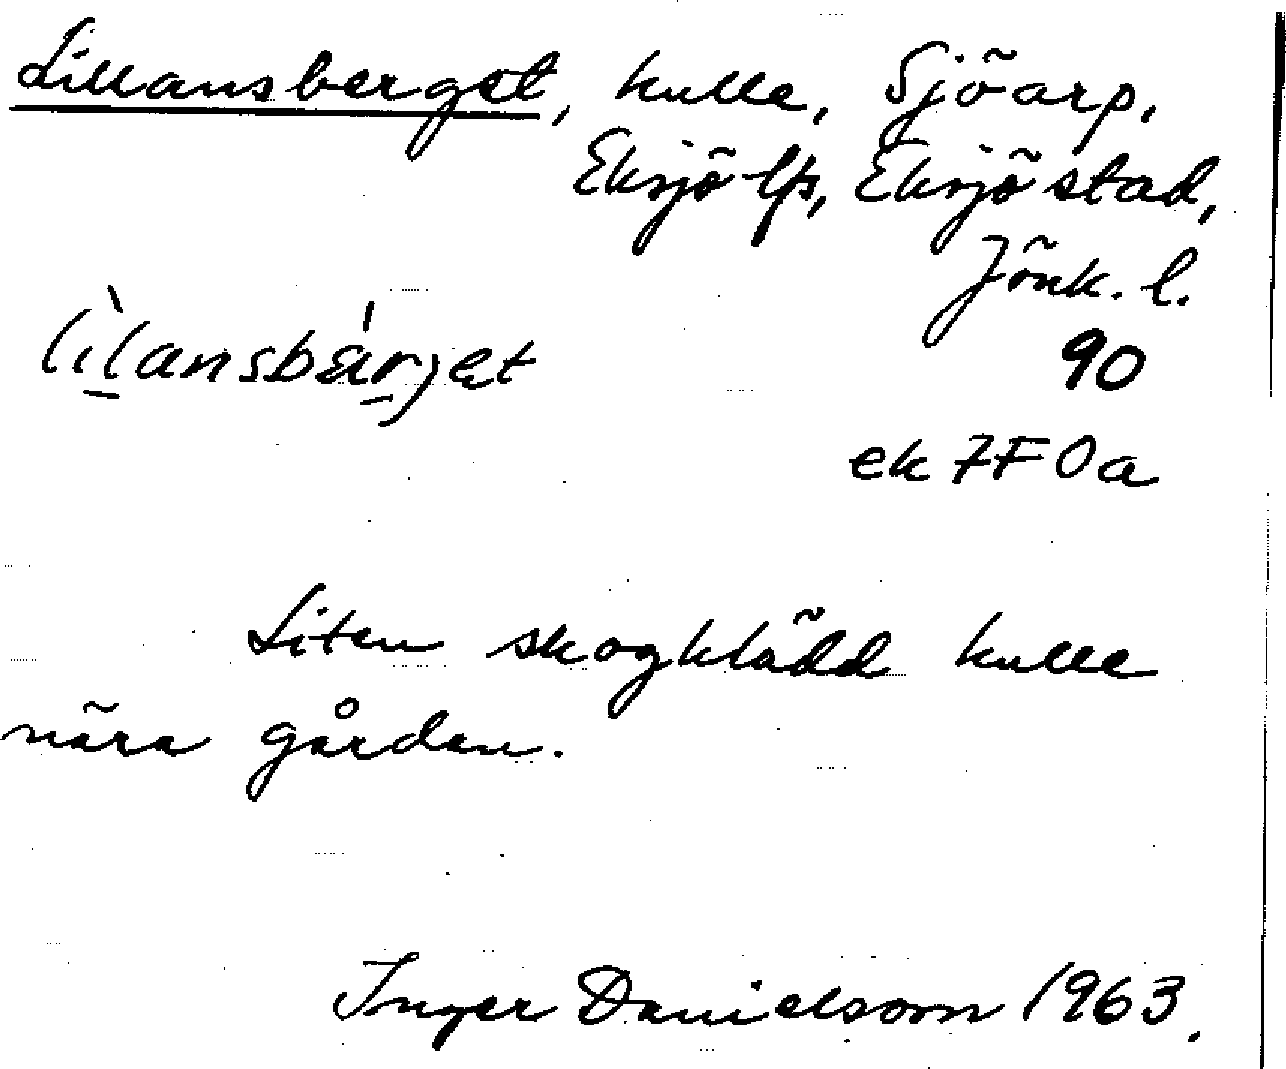 Lillansberget, kulle, Sjöarp,
Eksjö lfs, Eksjö stad,
Jönk. l.
lìlansbár̲jet
90
ek 7F0a
Liten skogklädd kulle
nära gården.
Inger Danielsson 1963.